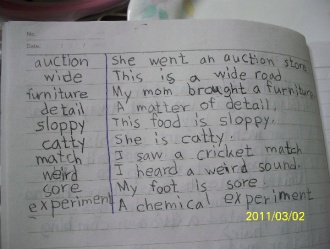 No:
Date:
auction She went an auction store
wide This is a wide road
furniture My mom brought a furniture
detail A matter of detail.
sloppy This food is sloppy.
catty She is catty.
match I saw a cricket match
weird I heard a weird sound.
sore My foot is sore.
experiment A chemical experiment
2011/03/02